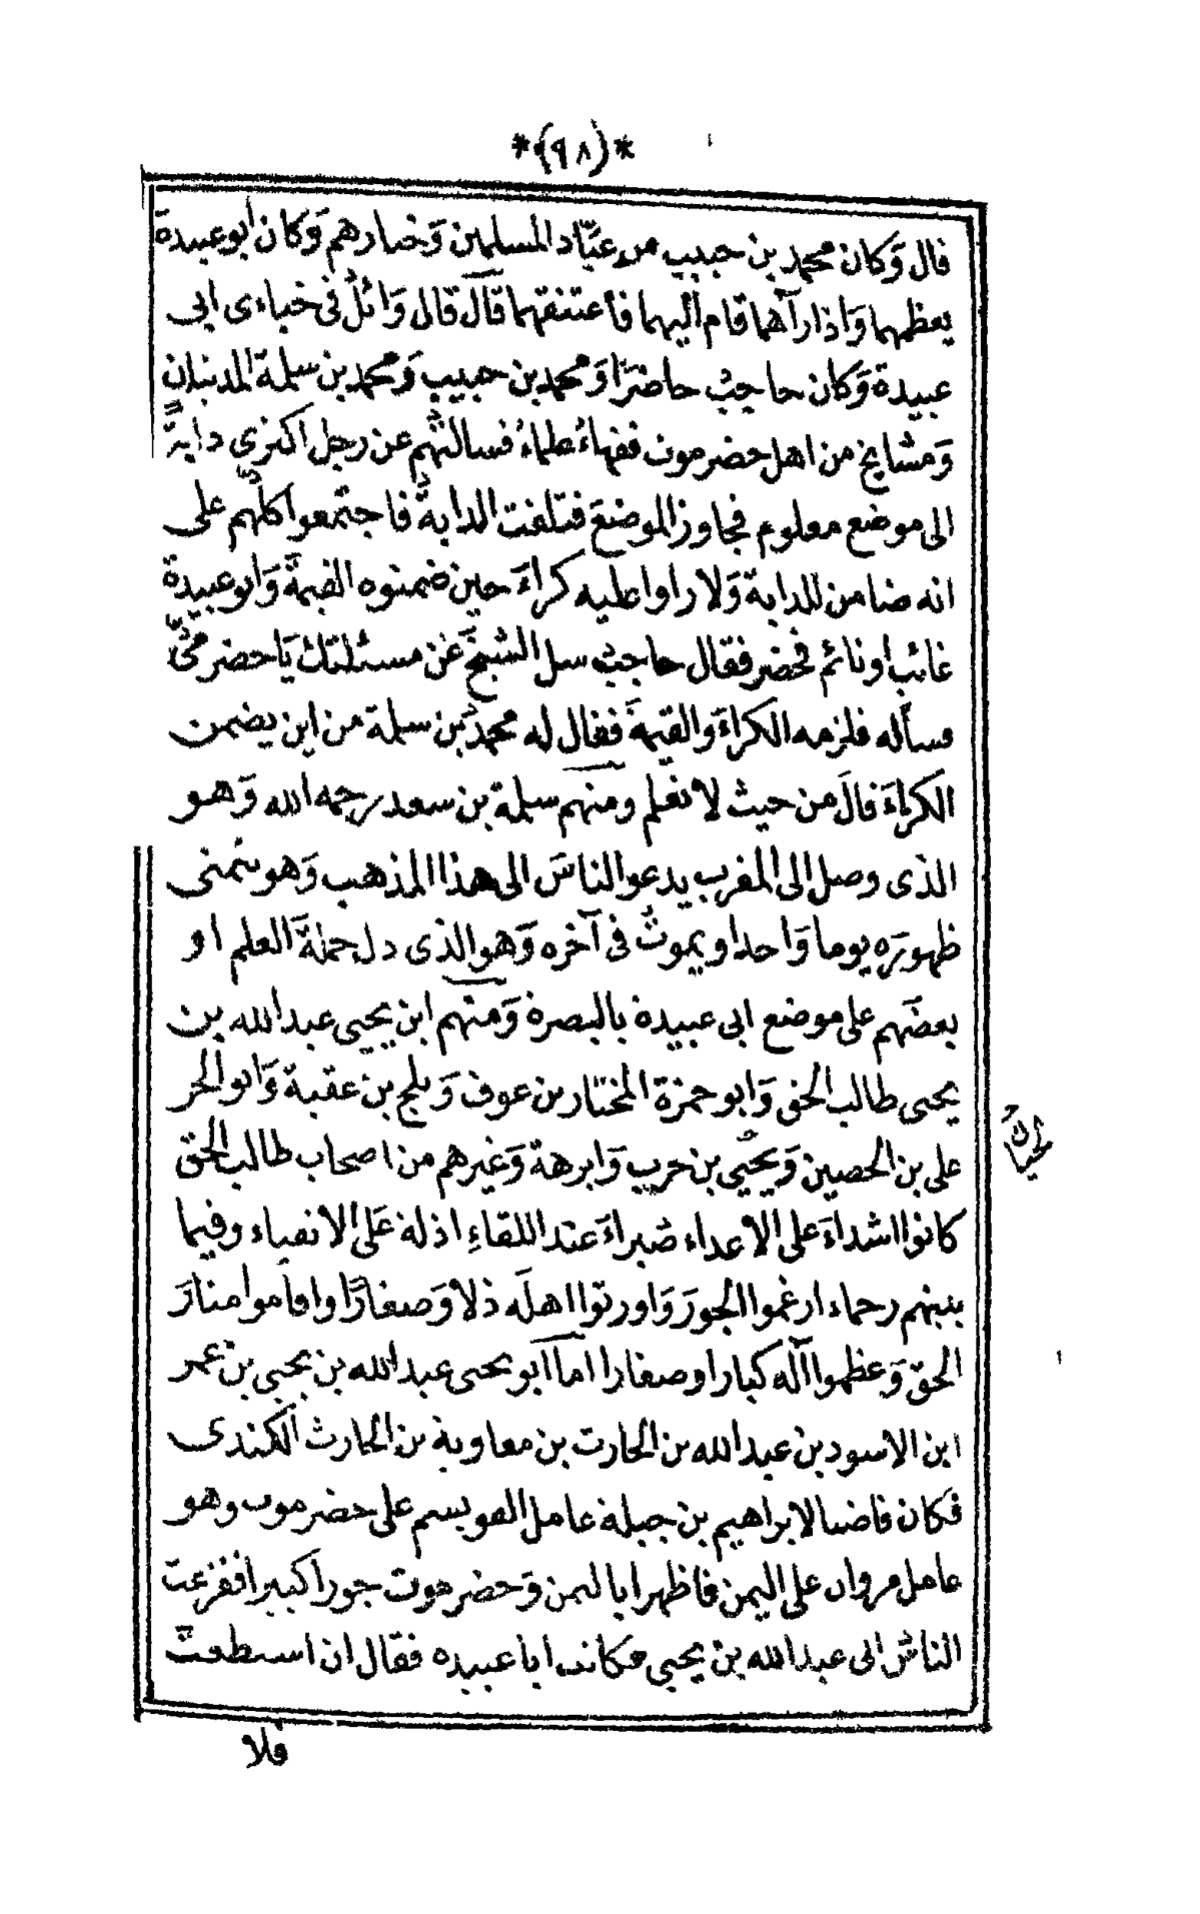 *(٩٨)*
قال وَكان محمد بن حبيب من عبَّاد المسلمين وَخيارهم وَكان ابو عبيدة
يعظمهما وَاذا رآهما قام اليهما فأعتنقهما قال قال وَائل في خباءى ابى
عبيدة وَكان حاجبُ حاضرًا وَمحمد بن حبيب وَمحمد بن سلمة المدنيان
وَمشايخ من اهل حضرموت ففهاءُ علماءُ فسالتهم عن رجل اكترى دابةً
الى موضع معلوم فجاوز الموضعَ فتلفت الدابةُ فاجتمعوا كلُّهم على
انه ضامن للدابة وَلا راوا عليه كراءَ حين ضمنوه القيمةَ وَابو عبيدة
غائب او نائم فحضر فقال حاجبُ سل الشيخَ عَن مسئلتك يَا حضرمىُّ
فسأله فلزمه الكراءَ وَالقيمةَ فقال له محمدُ بن سلمة من اين يضمن
الكراءَ قالَ من حيث لا تعلم ومنهم سلمة بن سعد رحمه الله وَهو
الذى وصل الى المغرب يدعو الناسَ الى هذا المذهب وَهو يتمنى
ظهورَه يوما وَاحدا ويموتُ في آخره وَهو الذى دل حملةَ العلم او
بعضَهم على موضع ابى عبيدة بالبصرة وَمنهم ابن يحيى عبد الله بن
يحيى طالب الحق وَابو حمزة المختار بن عوف وَبلج بن عقبة وَابو الحر
على بن الحصين وَيحيى بن حرب وَابرهة وَغيرهم من اصحاب طالب الحق
كانوا اشداءَ على الاعداء صُبراءَ عند اللقاءِ اذلة عَلى الاتقياء وفيما
بينهم رحماء ارغموا الجورَ وَاورثوا اهلَه ذلا وَصغارًا واقاموا منارَ
الحق وَعظموا آله كبارا وصغارا اما ابو يحيى عبد الله بن يحيى بن عمر
ابن الاسود بن عبد الله بن الحارث بن معاوية بن الحارث الكندى
فكان قاضيا لابراهيم بن جبلة عامل القويسم على حضرموت وهو
عامل مروان على اليمن فاظهرا باليمن وَحضرموت جورا كبيرا ففزعت
الناسُ الى عبد الله بن يحيى فكاتب ابا عبيده فقال ان استطعتَ
فلا